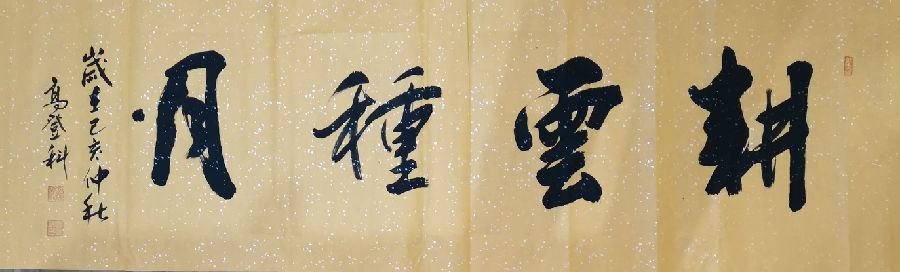 耕雲種月
歲在己亥仲秋
高登科